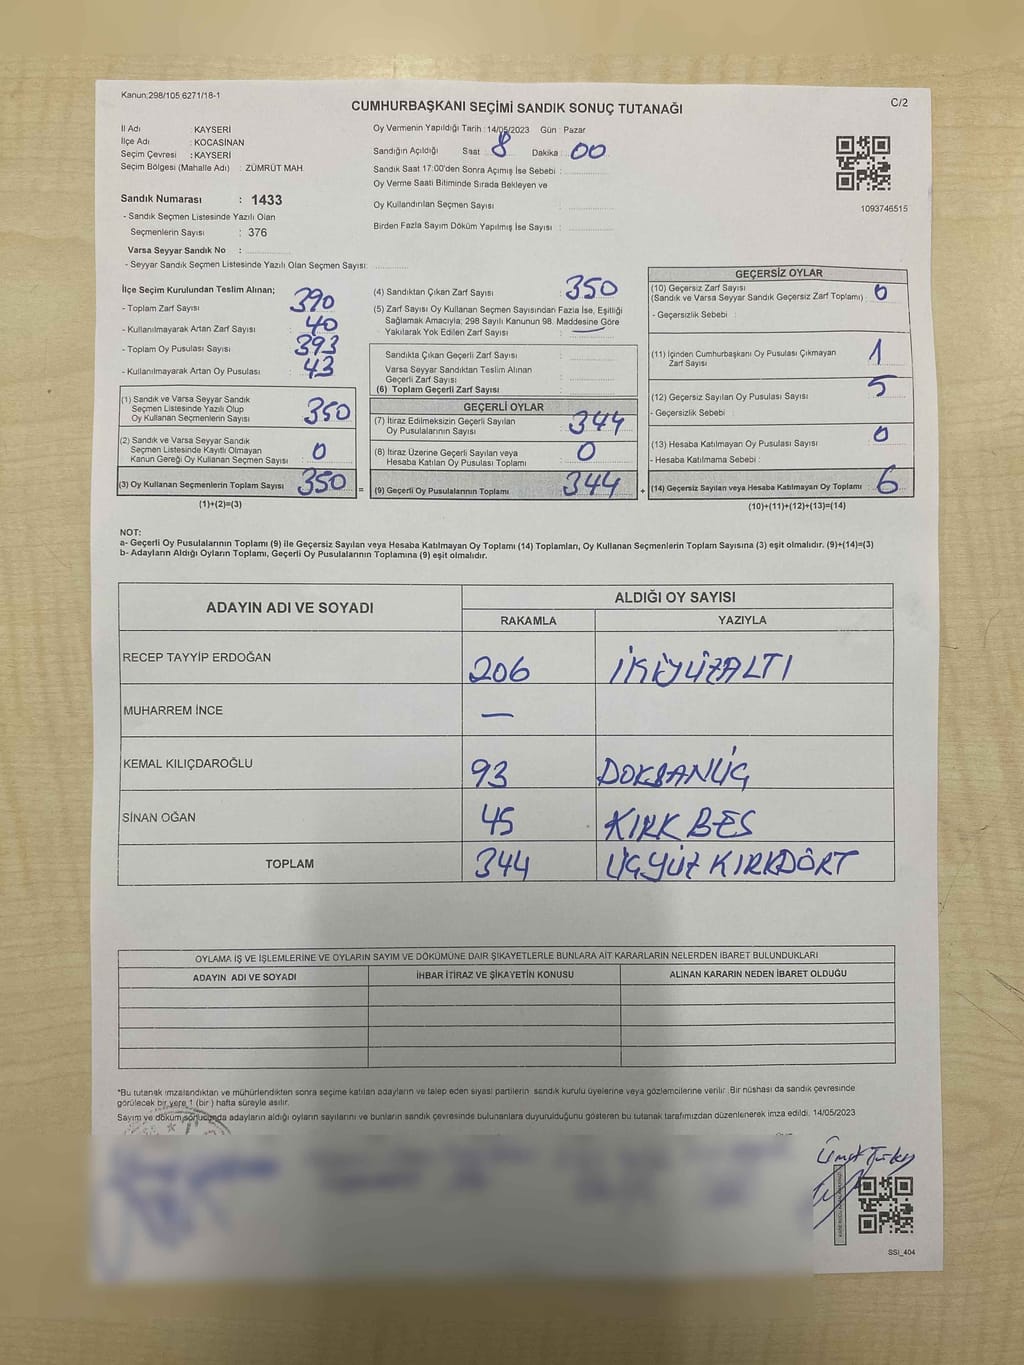 Kanun;298/105 6271/18-1
C/2
CUMHURBAŞKANI SEÇİMİ SANDIK SONUÇ TUTANAĞI
İl Adı : KAYSERİ
İlçe Adı : KOCASİNAN
Seçim Çevresi : KAYSERİ
Seçim Bölgesi (Mahalle Adı) : ZÜMRÜT MAH.
Sandık Numarası : 1433
- Sandık Seçmen Listesinde Yazılı Olan
Seçmenlerin Sayısı : 376
Varsa Seyyar Sandık No :
- Seyyar Sandık Seçmen Listesinde Yazılı Olan Seçmen Sayısı:
Oy Vermenin Yapıldığı Tarih : 14/05/2023 Gün : Pazar
Sandığın Açıldığı Saat : 8 Dakika : 00
Sandık Saat 17:00'den Sonra Açımış İse Sebebi :
Oy Verme Saati Bitiminde Sırada Bekleyen ve
Oy Kullandırılan Seçmen Sayısı :
Birden Fazla Sayım Döküm Yapılmış İse Sayısı :
1093746515
İlçe Seçim Kurulundan Teslim Alınan;
- Toplam Zarf Sayısı : 390
- Kullanılmayarak Artan Zarf Sayısı : 40
- Toplam Oy Pusulası Sayısı : 393
- Kullanılmayarak Artan Oy Pusulası : 43
(1) Sandık ve Varsa Seyyar Sandık
Seçmen Listesinde Yazılı Olup
Oy Kullanan Seçmenlerin Sayısı : 350
(2) Sandık ve Varsa Seyyar Sandık
Seçmen Listesinde Kayıtlı Olmayan
Kanun Gereği Oy Kullanan Seçmen Sayısı : 0
(3) Oy Kullanan Seçmenlerin Toplam Sayısı : 350 =
(1)+(2)=(3)
(4) Sandıktan Çıkan Zarf Sayısı : 350
(5) Zarf Sayısı Oy Kullanan Seçmen Sayısından Fazla İse, Eşitliği
Sağlamak Amacıyla; 298 Sayılı Kanunun 98. Maddesine Göre
Yakılarak Yok Edilen Zarf Sayısı : —
Sandıkta Çıkan Geçerli Zarf Sayısı :
Varsa Seyyar Sandıktan Teslim Alınan
Geçerli Zarf Sayısı :
(6) Toplam Geçerli Zarf Sayısı :
GEÇERLİ OYLAR
(7) İtiraz Edilmeksizin Geçerli Sayılan
Oy Pusulalarının Sayısı : 344
(8) İtiraz Üzerine Geçerli Sayılan veya
Hesaba Katılan Oy Pusulası Toplamı : 0
(9) Geçerli Oy Pusulalarının Toplamı : 344 +
GEÇERSİZ OYLAR
(10) Geçersiz Zarf Sayısı
(Sandık ve Varsa Seyyar Sandık Geçersiz Zarf Toplamı) : 0
- Geçersizlik Sebebi :
(11) İçinden Cumhurbaşkanı Oy Pusulası Çıkmayan
Zarf Sayısı : 1
(12) Geçersiz Sayılan Oy Pusulası Sayısı : 5
- Geçersizlik Sebebi :
(13) Hesaba Katılmayan Oy Pusulası Sayısı : 0
- Hesaba Katılmama Sebebi :
(14) Geçersiz Sayılan veya Hesaba Katılmayan Oy Toplamı : 6
(10)+(11)+(12)+(13)=(14)
NOT:
a- Geçerli Oy Pusulalarının Toplamı (9) ile Geçersiz Sayılan veya Hesaba Katılmayan Oy Toplamı (14) Toplamları, Oy Kullanan Seçmenlerin Toplam Sayısına (3) eşit olmalıdır. (9)+(14)=(3)
b- Adayların Aldığı Oyların Toplamı, Geçerli Oy Pusulalarının Toplamına (9) eşit olmalıdır.
ADAYIN ADI VE SOYADI
ALDIĞI OY SAYISI
RAKAMLA YAZIYLA
RECEP TAYYİP ERDOĞAN 206 İKİYÜZALTI
MUHARREM İNCE —
KEMAL KILIÇDAROĞLU 93 DOKSANÜÇ
SİNAN OĞAN 45 KIRK BEŞ
TOPLAM 344 ÜÇYÜZ KIRKDÖRT
OYLAMA İŞ VE İŞLEMLERİNE VE OYLARIN SAYIM VE DÖKÜMÜNE DAİR ŞİKAYETLERLE BUNLARA AİT KARARLARIN NELERDEN İBARET BULUNDUKLARI
ADAYIN ADI VE SOYADI İHBAR İTİRAZ VE ŞİKAYETİN KONUSU ALINAN KARARIN NEDEN İBARET OLDUĞU
*Bu tutanak imzalandıktan ve mühürlendikten sonra seçime katılan adayların ve talep eden siyasi partilerin sandık kurulu üyelerine veya gözlemcilerine verilir .Bir nüshası da sandık çevresinde
görülecek bir yere 1 (bir ) hafta süreyle asılır.
Sayım ve döküm sonucunda adayların aldığı oyların sayılarını ve bunların sandık çevresinde bulunanlara duyurulduğunu gösteren bu tutanak tarafımızdan düzenlenerek imza edildi. 14/05/2023
SSI_404